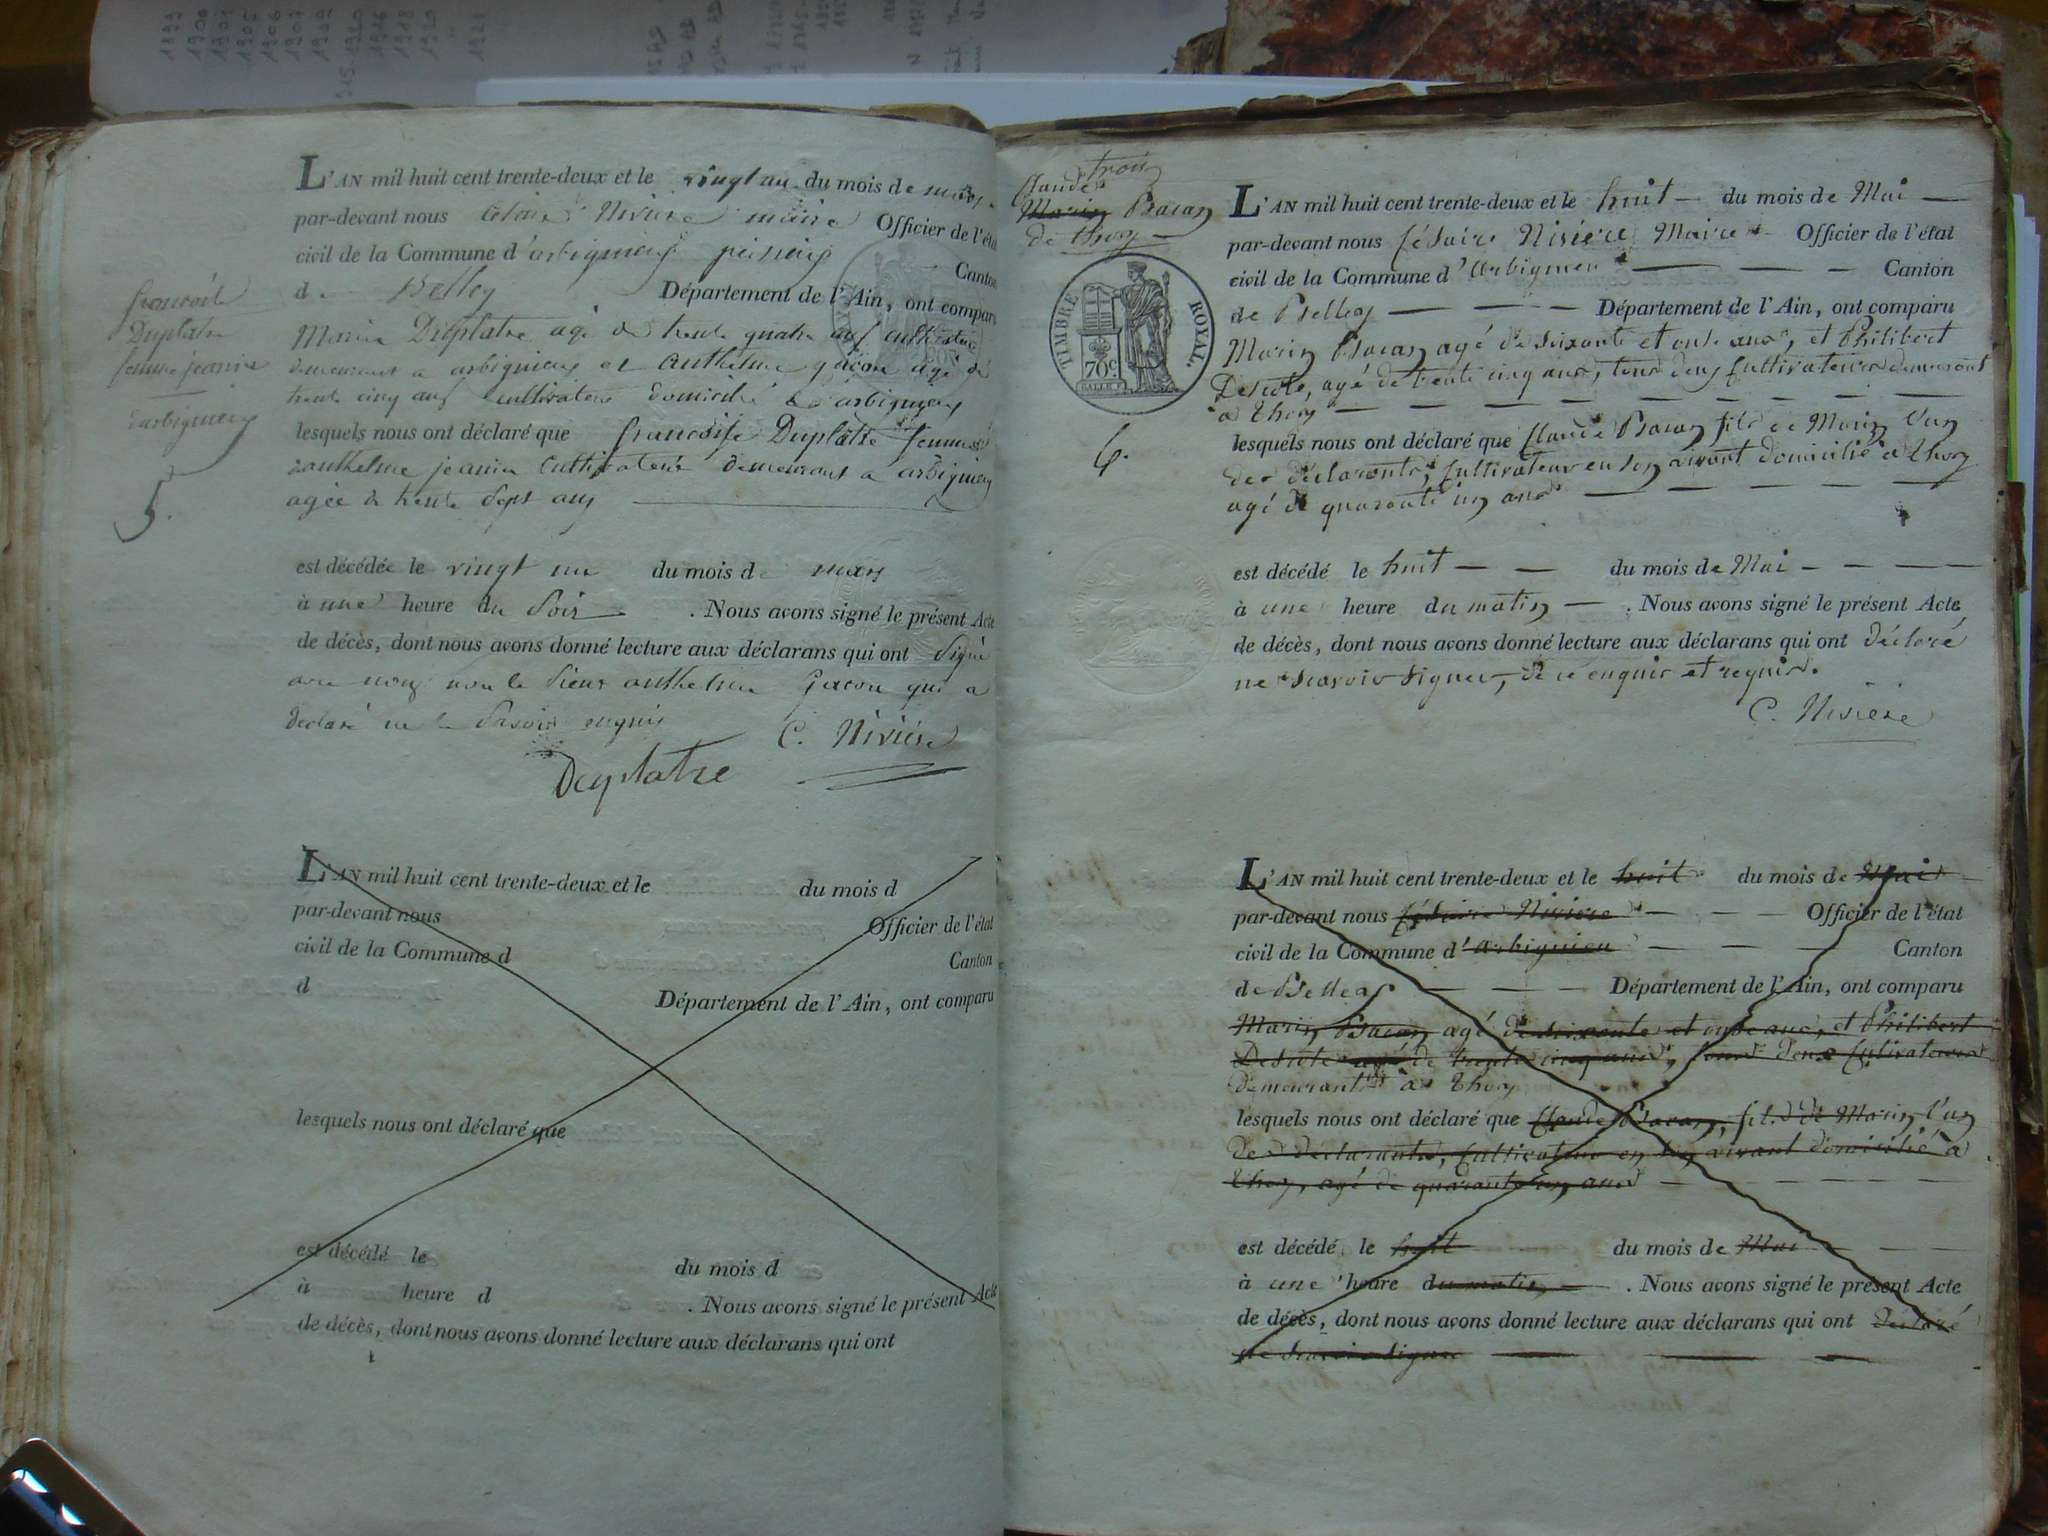 françoise
Duplatre
femme jeanin
d'arbignieu
5.
L'AN mil huit cent trente-deux et le vingt un du mois de mars
par-devant nous Césaire Nivière maire Officier de l'état
civil de la Commune d'arbignieu Canton
de Belley Département de l'Ain, ont comparu
Marin Duplatre agé de trente quatre ans cultivateur
demeurant a arbignieu et anthelme gacon agé de
trente cinq ans cultivateur domicilié a arbignieu
lesquels nous ont déclaré que françoise Duplatre femme
d'anthelme jeanin cultivateur demeurant a arbignieu
agée de trente sept ans
est décédée le vingt un du mois de mars
à une heure du soir . Nous avons signé le présent Acte
de décès, dont nous avons donné lecture aux déclarans qui ont signé
avec nous non le sieur anthelme gacon qui a
déclaré ne le savoir enquis
C. Nivière
Duplatre
L'AN mil huit cent trente-deux et le du mois d
par-devant nous Officier de l'état
civil de la Commune d Canton
d Département de l'Ain, ont comparu
lesquels nous ont déclaré que
est décédé le du mois d
à heure d . Nous avons signé le présent Acte
de décès, dont nous avons donné lecture aux déclarans qui ont
trois
Claude
Marin Bacan
de thoy
TIMBRE ROYAL.
70c.
6.
L'AN mil huit cent trente-deux et le huit du mois de Mai
par-devant nous Césaire Nivière Maire Officier de l'état
civil de la Commune d'arbignieu Canton
de Belley Département de l'Ain, ont comparu
Marin Bacan agé de soixante et onze ans, et Philibert
Desiote, agé de trente cinq ans, tous deux cultivateurs demeurant
à thoy
lesquels nous ont déclaré que Claude Bacan fils de Marin l'un
des déclarants, cultivateur en son vivant domicilié à thoy
agé de quarante un ans
est décédé le huit du mois de Mai
à une heure du matin . Nous avons signé le présent Acte
de décès, dont nous avons donné lecture aux déclarans qui ont déclaré
ne scavoir signer, de ce enquis et requis.
C. Nivière
L'AN mil huit cent trente-deux et le huit du mois de Mai
par-devant nous Césaire Nivière Officier de l'état
civil de la Commune d'arbignieu Canton
de Belley Département de l'Ain, ont comparu
Marin Bacan agé de soixante et onze ans, et Philibert
Desiote agé de trente cinq ans, tous deux cultivateurs
demeurant à thoy
lesquels nous ont déclaré que Claude Bacan, fils de Marin l'un
des déclarants, cultivateur en son vivant domicilié à
thoy, agé de quarante un ans
est décédé le huit du mois de Mai
à une heure du matin . Nous avons signé le présent Acte
de décès, dont nous avons donné lecture aux déclarans qui ont déclaré
ne scavoir signer